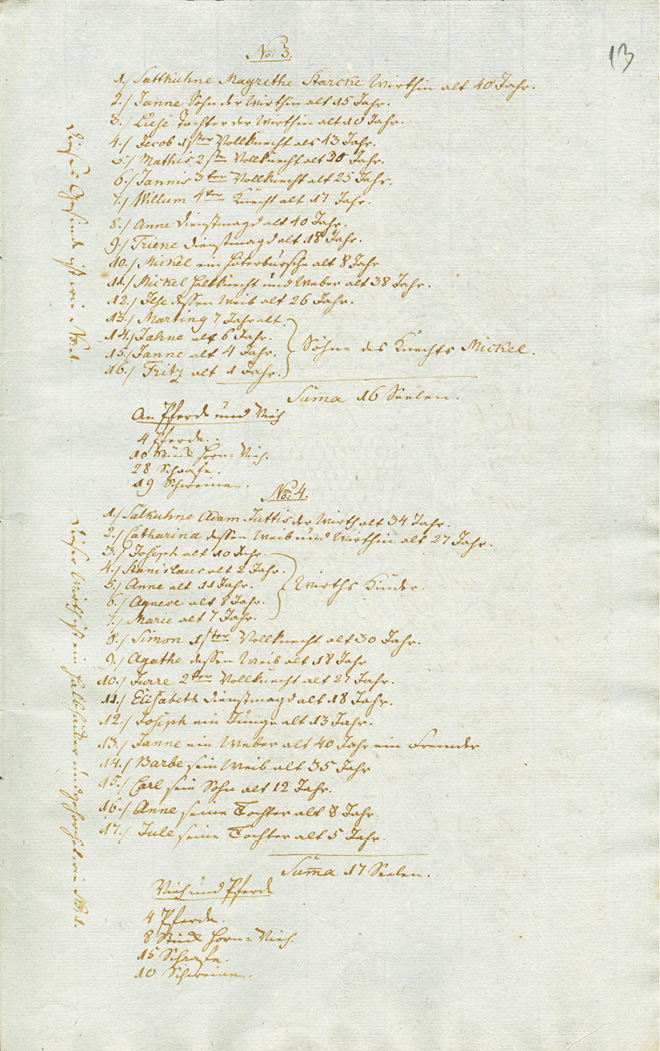 13
No. 3.
1./ Sattkuhne Magrethe Starcke Wirthin alt 40 Jahr.
2./ Janne Sohn der Wirthin alt 15 Jahr.
3./ Liese Tochter der Wirthin alt 10 Jahr.
4./ Jecob 1ster Vollknecht alt 43 Jahr.
5./ Mathis 2ter Vollknecht alt 30 Jahr.
6./ Jannis 3ter Vollknecht alt 25 Jahr.
7./ Willum 4ter Knecht alt 17 Jahr.
8./ Anne Dienstmagd alt 40 Jahr.
9./ Triene Dienstmagd alt 18 Jahr.
10./ Mickel ein Hüterbursche alt 8 Jahr
11./ Mickel Halbknecht und Weber alt 38 Jahr.
12./ Ilse dessen Weib alt 26 Jahr.
13./ Marting 7 Jahr alt.
14./ Jahne alt 6 Jahr.
15./ Janne alt 4 Jahr.
16./ Fritz alt 1 Jahr.
Söhne des Knechts Mickel.
Suma 16 Seelen.
An Pferde und Vieh
4 Pferde.
10 Stück Horn-Vieh.
28 Schaafe.
19 Schweine.
Dieses Gesinde ist wie No. 1.
No. 4.
1./ Satkuhne Adam Juttis der Wirth alt 34 Jahr.
2./ Catharina dessen Weib und Wirthin alt 27 Jahr.
3./ Joseph alt 10 Jahr.
4./ Stanislaus alt 2 Jahr.
5./ Anne alt 11 Jahr.
6./ Agnese alt 8 Jahr.
7./ Marie alt 7 Jahr.
Wirths Kinder.
8./ Simon 1ster Vollknecht alt 30 Jahr.
9./ Agathe dessen Weib alt 18 Jahr
10./ Jurre 2ter Vollknecht alt 27 Jahr.
11./ Elisabeth Dienstmagd alt 18 Jahr.
12./ Joseph ein Junge alt 13 Jahr.
13./ Janne ein Weber alt 40 Jahr ein Fremder
14./ Barbe sein Weib alt 35 Jahr
15./ Carl sein Sohn alt 12 Jahr.
16./ Anne seine Tochter alt 8 Jahr.
17./ Jule seine Tochter alt 5 Jahr.
Suma 17 Seelen.
Vieh und Pferde
4 Pferde.
8 Stück Horn-Vieh.
15 Schaafe.
10 Schweine.
Dieser Wirth ist ein Halbhäker und wie No. 1.